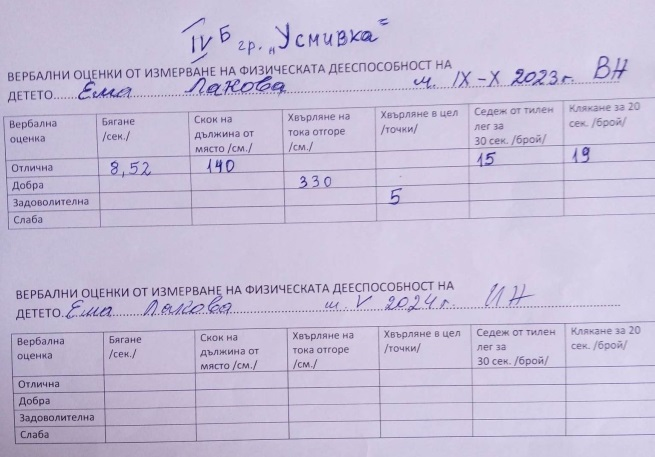 IV Б гр. „Усмивка"
ВЕРБАЛНИ ОЦЕНКИ ОТ ИЗМЕРВАНЕ НА ФИЗИЧЕСКАТА ДЕЕСПОСОБНОСТ НА
ДЕТЕТО......Ема Лакова м. IX-X 2023г. ВН
Вербална оценка Бягане /сек./ Скок на дължина от място /см./ Хвърляне на тока отгоре /см./ Хвърляне в цел /точки/ Седеж от тилен лег за 30 сек. /брой/ Клякане за 20 сек. /брой/
Отлична 8,52 140 15 19
Добра 330
Задоволителна 5
Слаба
ВЕРБАЛНИ ОЦЕНКИ ОТ ИЗМЕРВАНЕ НА ФИЗИЧЕСКАТА ДЕЕСПОСОБНОСТ НА
ДЕТЕТО.Ема Лакова м. V 2024г. ИН
Вербална оценка Бягане /сек./ Скок на дължина от място /см./ Хвърляне на тока отгоре /см./ Хвърляне в цел /точки/ Седеж от тилен лег за 30 сек. /брой/ Клякане за 20 сек. /брой/
Отлична
Добра
Задоволителна
Слаба